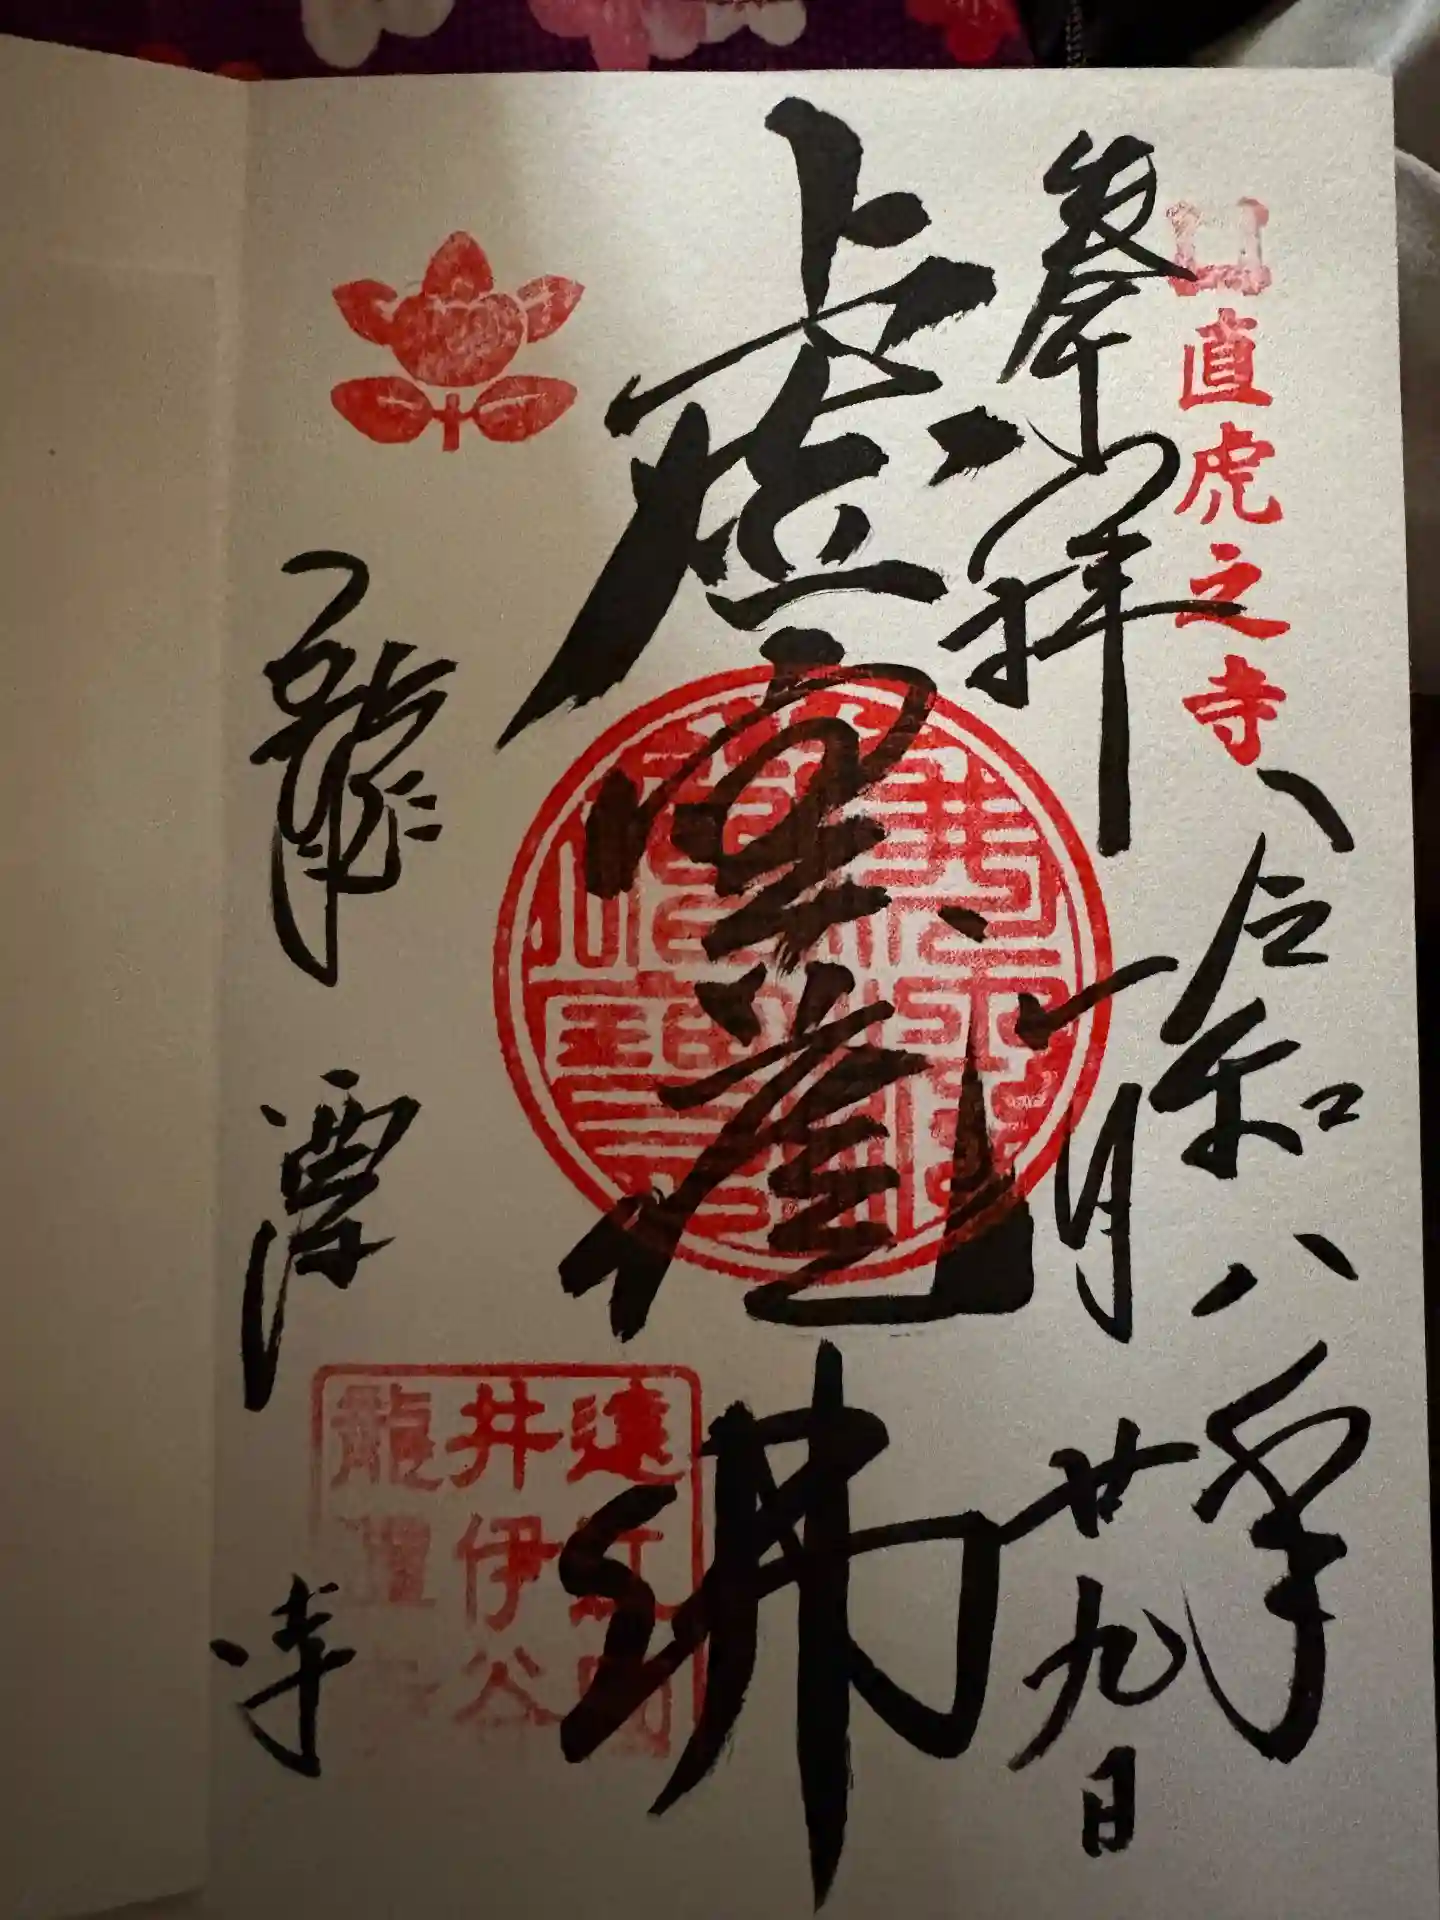 直虎之寺
拝
令和八年
一月廿九日
虚空蔵佛
龍潭寺
遠江國
井伊谷
龍潭寺